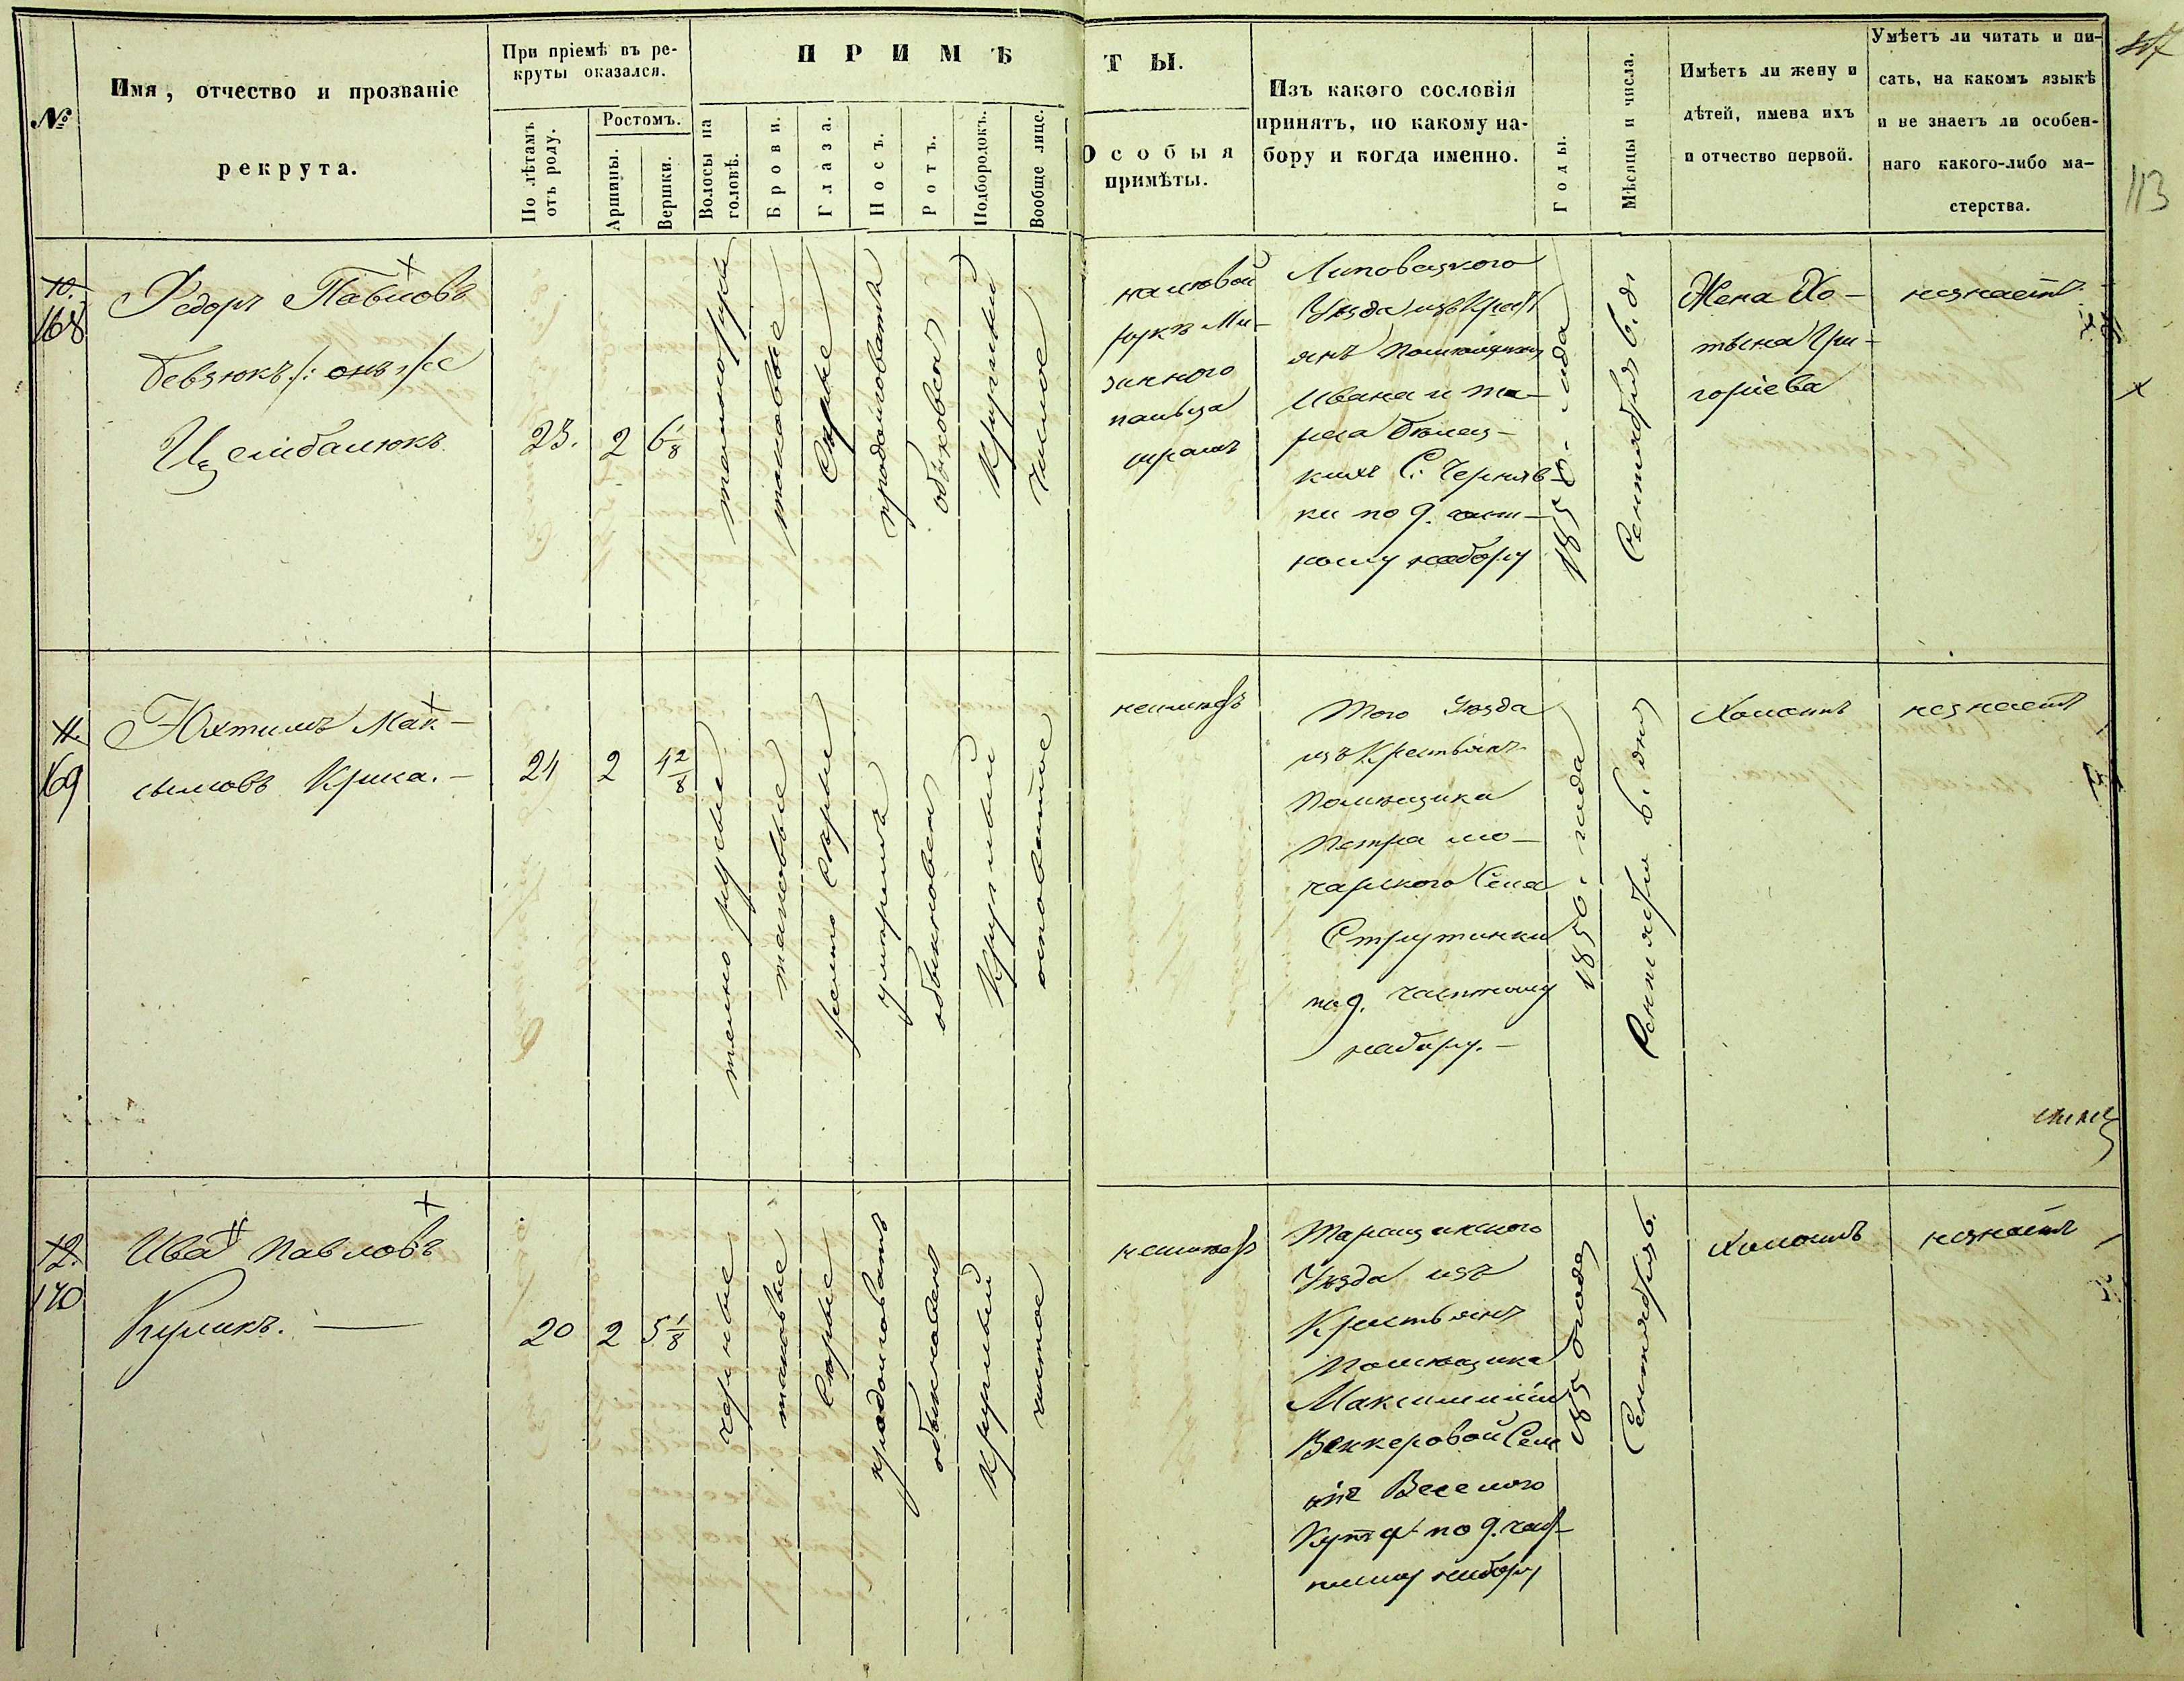 №
Имя, отчество и прозваніе
рекрута.
При пріемѣ въ ре-
круты оказался.
По лѣтамъ
отъ роду.
Ростомъ.
Аршины.
Вершки.
П Р И М Ѣ
Т Ы.
Волосы на
головѣ.
Брови.
Глаза.
Носъ.
Ротъ.
Подбородокъ.
Вообще лице.
Особыя
примѣты.
Изъ какого сословія
принятъ, по какому на-
бору и когда именно.
Годы.
Мѣсяцы и числа.
Имѣетъ ли жену и
дѣтей, имена ихъ
и отчество первой.
Умѣетъ ли читать и пи-
сать, на какомъ языкѣ
и не знаетъ ли особен-
наго какого-либо ма-
стерства.
113
10.
168
Федоръ Павловъ
Бевзюкъ /: онъ же
Цембалюкъ
23.
2
6 1/8
темнорусые
таковые
Сѣрые
продолговатъ
обыкновен
Круглый
чистое
на левой
рукѣ Ми-
зинного
пальца
шрамъ
Липовецкого
Уѣзда изъ Крест
янъ Помѣщика
Ивана и
ких С. Черняв-
ки по 9. част-
ному набору
1850. года
Сентября 6. д.
Жена Хо-
тына Гри-
горіева
незнаетъ
11.
169
Юхтимъ Мак-
сымовъ Криса.-
24
2
4 2/8
темно русые
таковые
Светло Сѣрые
умеренъ
обыкновен
Круглый
осповатое
неимеетъ
Того Уѣзда
изъ Крестьянъ
Помѣщика
Петра Мо-
чарского Села
Струтинки
по 9. частному
набору.-
1850. года
Сентября 6. дня
Холостъ
незнаетъ
12.
170
Иванъ Павловъ
Куликъ.
20
2
5 1/8
черные
таковые
Сѣрые
продолговатъ
обыкновен
Круглый
чистое
неимеетъ
Таращанского
Уѣзда изъ
Крестьянъ
Помѣщика
Максимилій
Веккеровой Селе
нія Веселого
Кута по 9. част-
ному набору
1850 года
Сентября 6.
Холостъ
незнаетъ